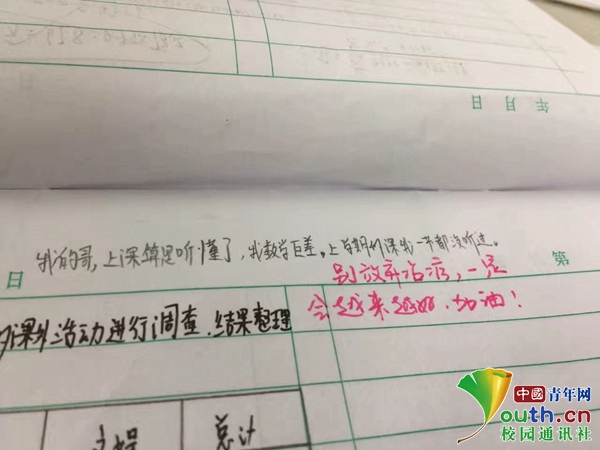 年 月 日
我的哥,上课算是听懂了,我数学巨差。上学期的课我一节都没听进。
日
第
别放弃治疗,一定
会越来越好,加油!
课外活动进行调查,结果整理
总计
中國青年网
youth.cn
校园通讯社